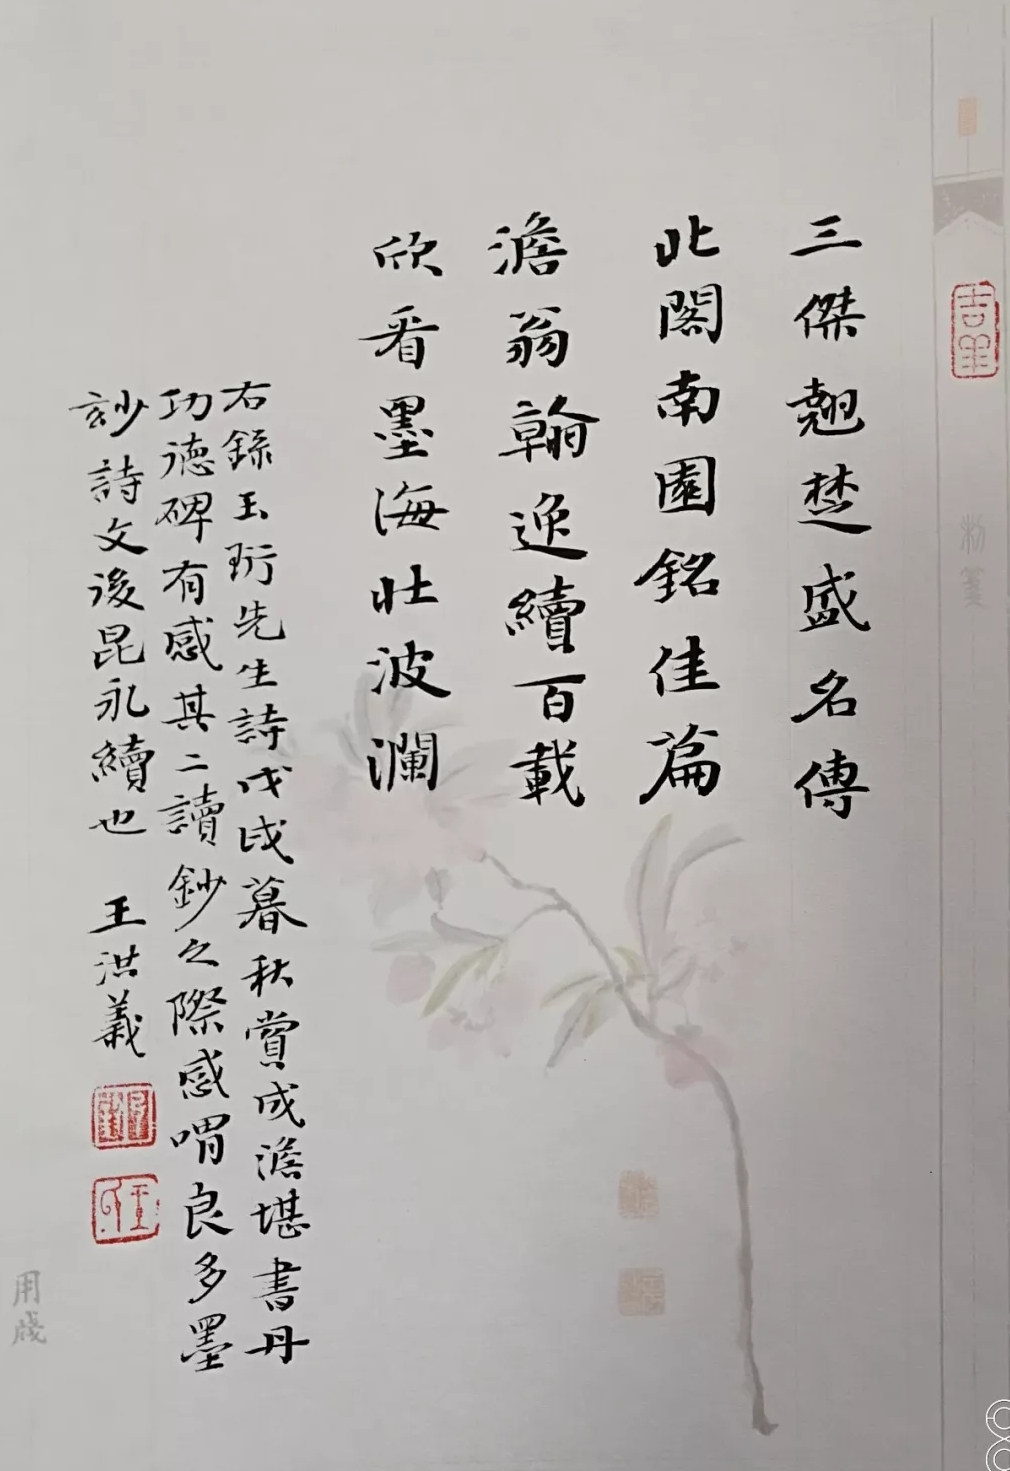 三傑翹楚盛名傳
北閣南園銘佳篇
澹翁翰逸續百載
欣看墨海壯波瀾
右錄玉珩先生詩戊戌暮秋賞成澹堪書丹
功德碑有感其二讀鈔之際感喟良多墨
妙詩文後昆永續也 王洪義
吉羊
用牋